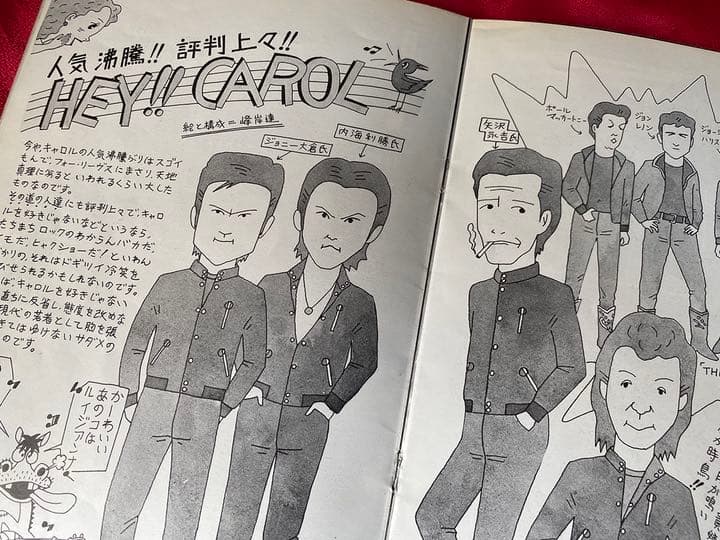 人気 沸騰!! 評判上々!!
HEY!! CAROL
絵と構成=峰岸達
今やキャロルの人気沸騰ぶりはスゴイ
もんで、フォーリーブスにまさり、天地
真理にあるといわれるくらい大した
ものなのです。
その道の人達にも評判上々で、キャロ
ルを好きじゃないなどというなら、
たちまち ロックのわからんバカだ、
モだ!ヒャクショーだ!といわん
かりの、それはドギツイ冷笑を
びせられるかもしれないのです。
ば、キャロルを好きじゃない
直ちに反省し態度を改めな
現代の若者として胸を張
きてはゆけないサダメの
のです。
ジョニー大倉氏
内海利勝氏
かーわいい
あのコは
ルイジアンナ
矢沢
永吉氏
ポール
マッカートニー
ジョン
レノン
ジョー
ハリス
TH
時
鳥が鳴い